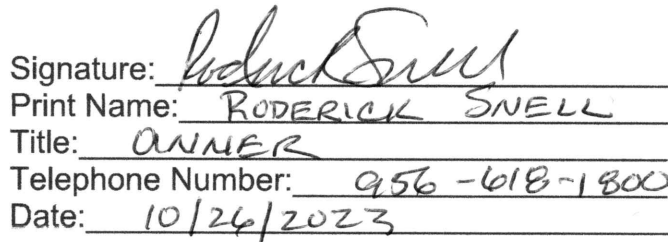 Signature: Roderick Snell
Print Name: RODERICK SNELL
Title: OWNER
Telephone Number: 956-618-1800
Date: 10/26/2023